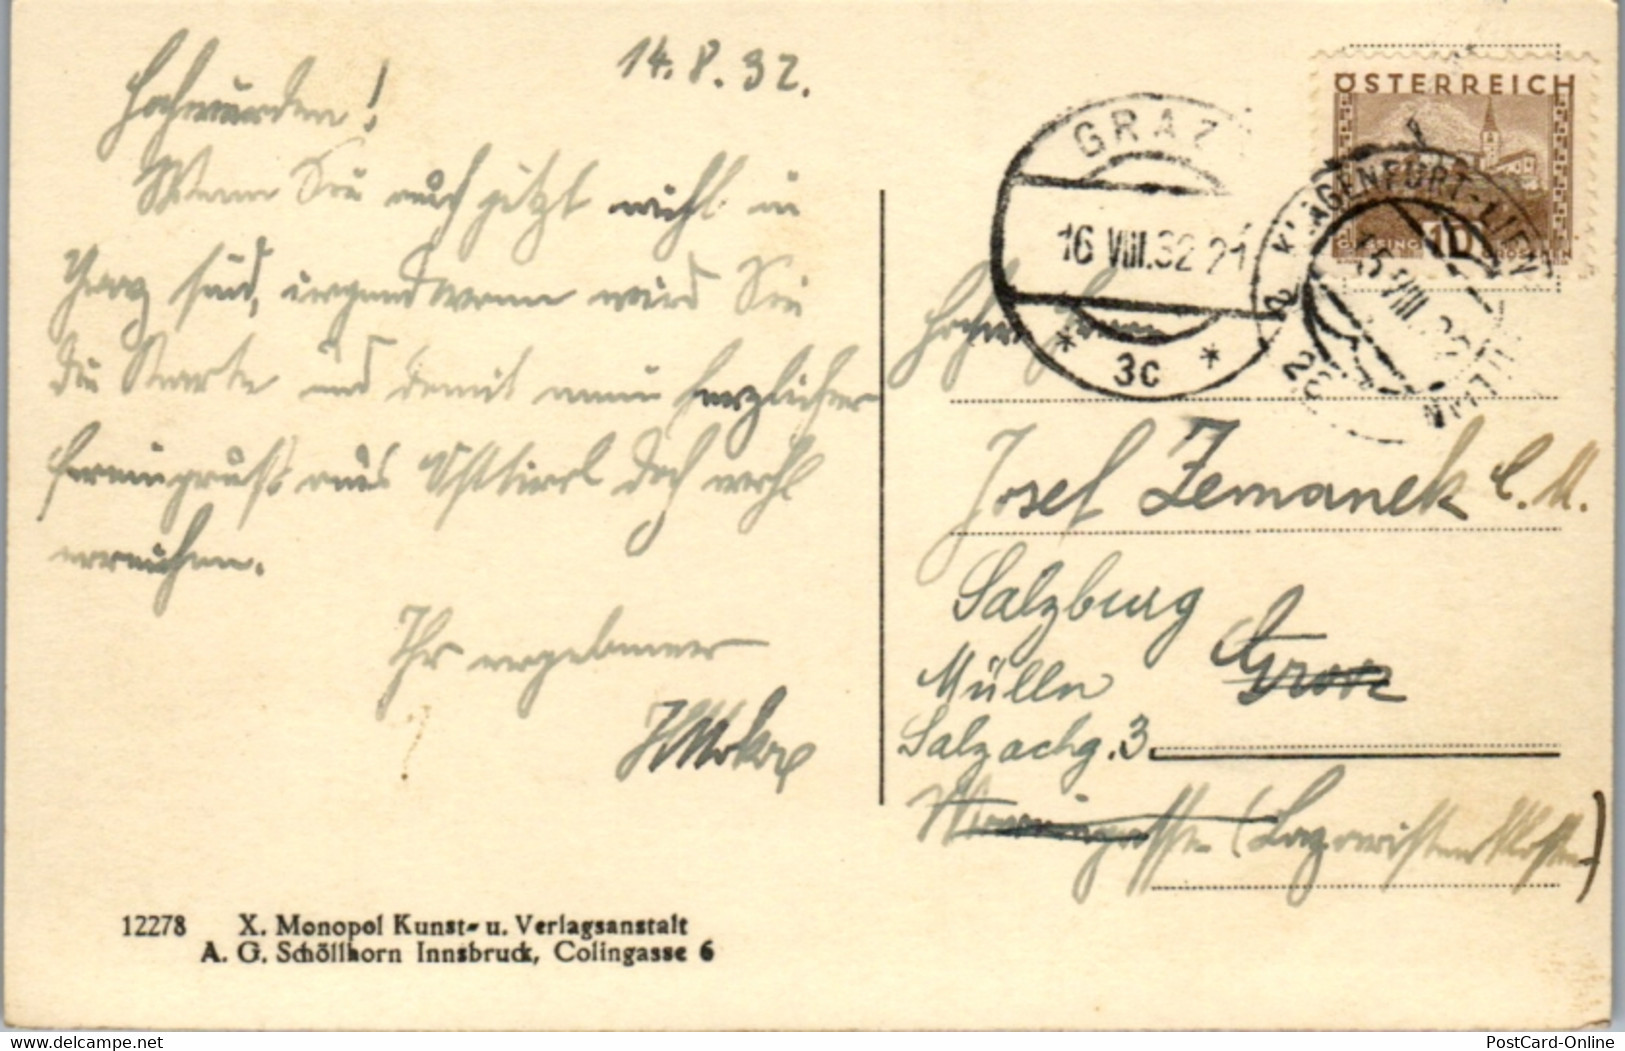 14.8.32.
Hochwürden!
Wenn Sie auch jetzt nicht in
Graz sind, irgendwann wird Sie
die Karte und damit mein herzlicher
Feriengruß aus Osttirol doch wohl
erreichen.
Ihr ergebener
12278 X. Monopol Kunst- u. Verlagsanstalt
A. G. Schöllhorn Innsbruck, Colingasse 6
ÖSTERREICH
GÜSSING 10 GROSCHEN
GRAZ
16 VIII.32 21
* 3c *
KLAGENFURT-LIENZ
Hochw. Herrn
Josef Zemanek C. M.
Salzburg
Graz
Mülln
Salzachg. 3
(Lazaristenkloster)
PostCard-Online
delcampe.net